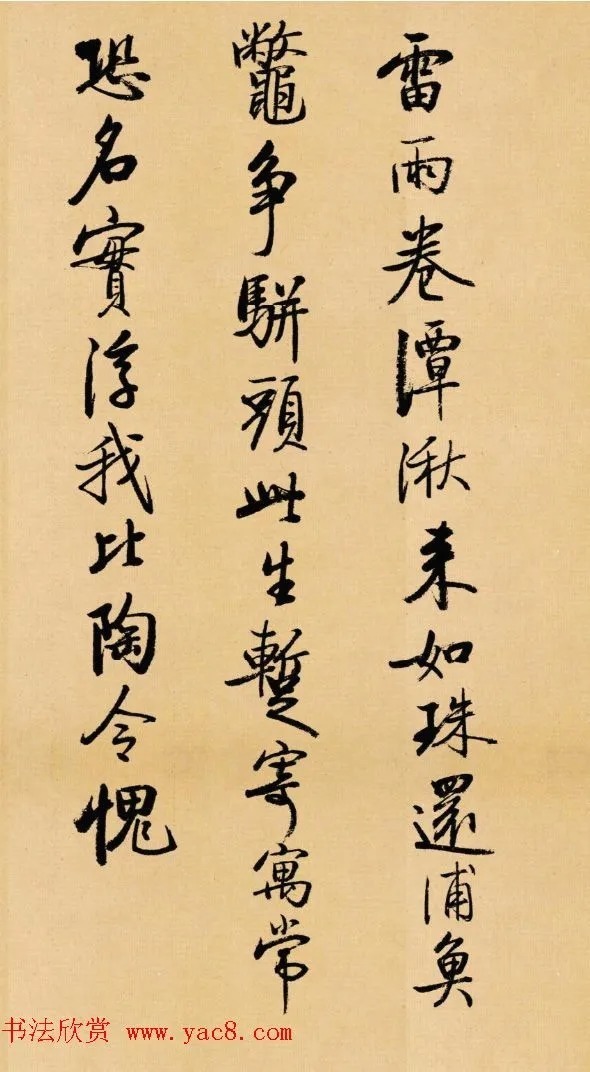 雷雨卷潭湫来如珠還浦魚
鼈争駢頭此生蹔寄寓常
恐名實浮我比陶令愧
书法欣赏 www.yac8.com